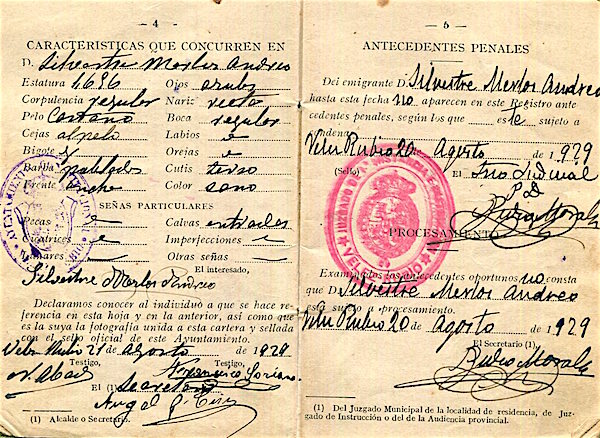 — 4 —
CARACTERISTICAS QUE CONCURREN EN
D. Silvestre Merlos Andreo
Estatura 1'696 Ojos azules
Corpulencia regular Nariz recta
Pelo Castaño Boca regular
Cejas al pelo Labios
Bigote Orejas
Barba Cutis terso
Frente ancha Color sano
SEÑAS PARTICULARES
Pecas Calvas entradas
Cicatrices Imperfecciones
Lunares Otras señas
El interesado,
Silvestre Merlos Andreo
Declaramos conocer al individuo a que se hace re-
ferencia en esta hoja y en la anterior, así como que
es la suya la fotografía unida a esta cartera y sellada
con el sello oficial de este Ayuntamiento.
Velez Rubio 21 de agosto de 1929
Testigo, Testigo,
Francisco Soriano
El (1) Secretario
Angel
(1) Alcalde o Secretario.
— 5 —
ANTECEDENTES PENALES
Del emigrante D. Silvestre Merlos Andreo
hasta esta fecha no aparecen en este Registro ante-
cedentes penales, según los que este sujeto a
condena.
Velez Rubio 20 Agosto de 1929
(Sello) El
P. D.
Pedro Morales
PROCESAMIENTO
Examinados los antecedentes oportunos no consta
que D. Silvestre Merlos Andreo
esté sujeto a procesamiento.
Velez Rubio 20 de Agosto de 1929
El Secretario (1),
Pedro Morales
(1) Del Juzgado Municipal de la localidad de residencia, de Juz-
gado de Instrucción o del de la Audiencia provincial.